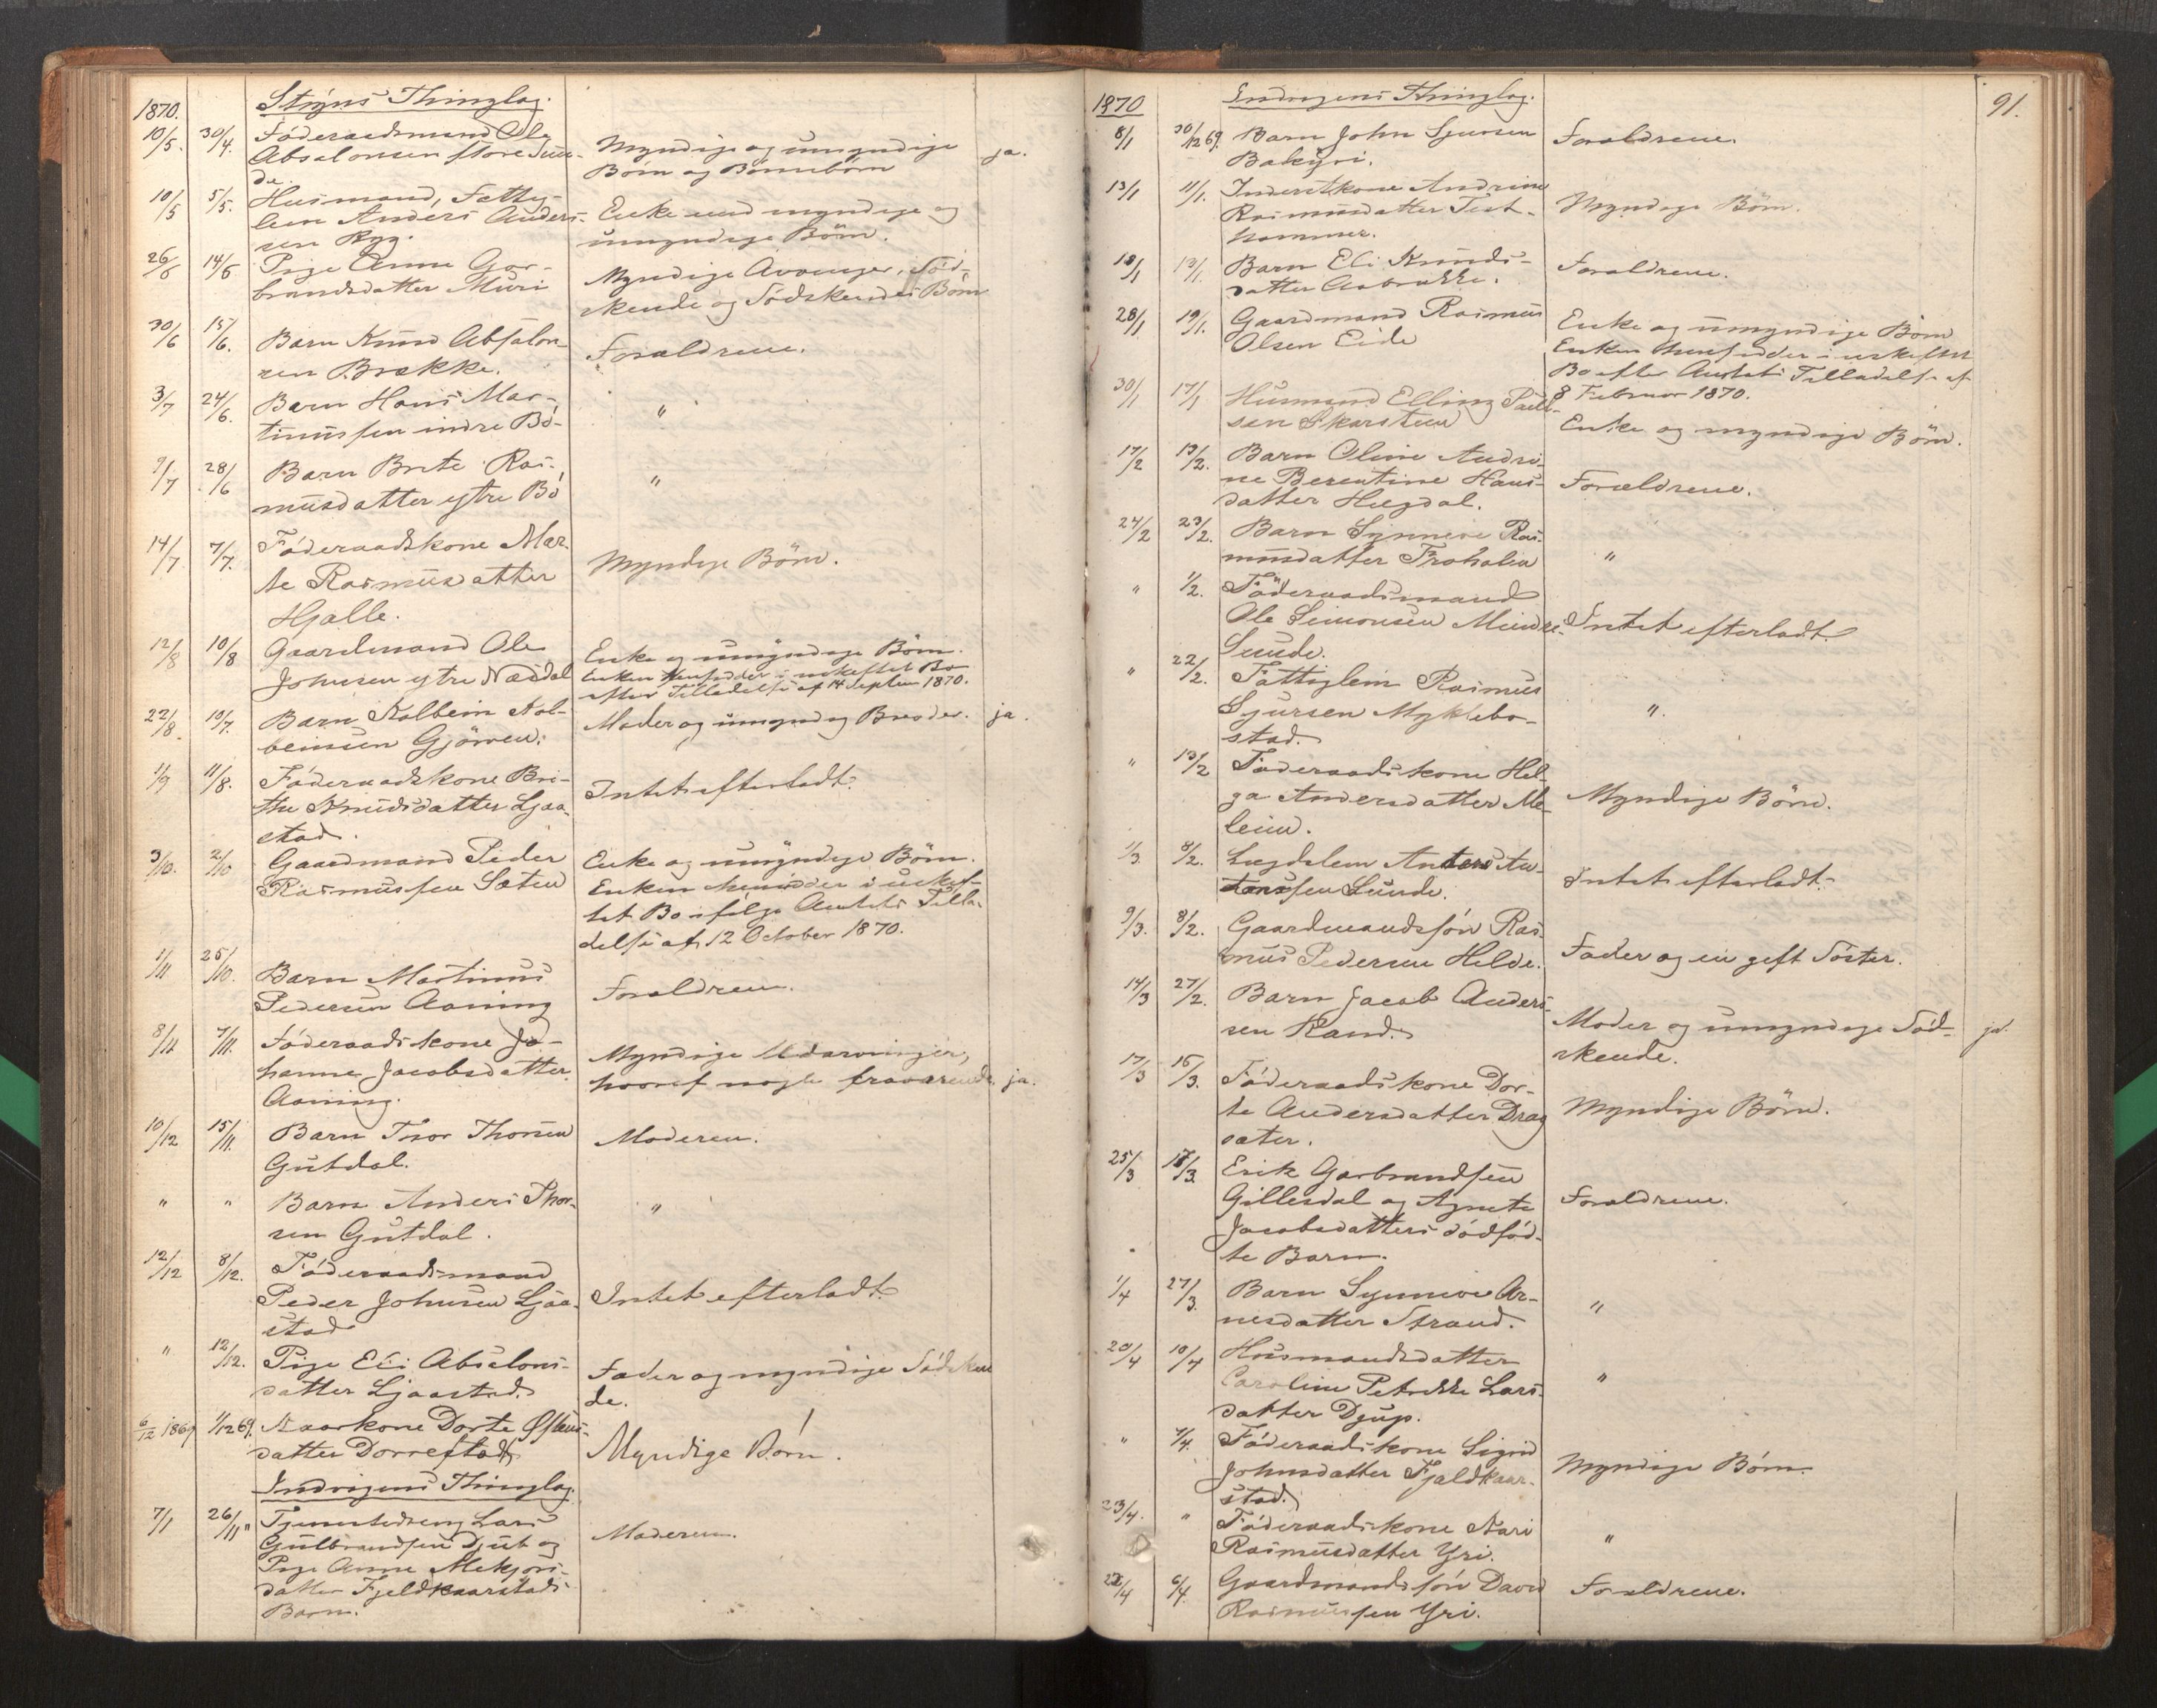 1870.
Stryns Thinglag.
10/5. 30/4. Föderaadsmand Ole
Absalonsen store Sun-
de.
Myndige og umyndige
Börn og Börnebörn
ja.
10/5 5/5. Husmand, Fattig-
lem Anders Anders-
sen Ryg.
Enke med myndige og
umyndige Börn.
26/6 14/6 Pige Anne Gar-
brandsdatter Muri
Myndige Arvinger, Söd-
skende og Södskendes Börn
30/6 15/6. Barn Knud Absalon-
sen Brække.
Forældrene.
3/7 24/6. Barn Hans Mar-
tinussen indre Bö-
"
9/7 28/6 Barn Brite Ras-
musdatter ytre Bö
"
14/7 7/7. Föderaadskone Mar-
te Rasmusdatter
Hjelle.
Myndige Börn.
12/8 10/8 Gaardmand Ole
Johnsen ytre Næsdal
Enke og umyndige Börn.
Enken hensidder i uskiftet Bo
efter Tilladelse af 14 Septem 1870.
22/8. 10/7. Barn Kolbein Kol-
beinsen Gjörven.
Moder og umyndig Broder.
ja.
1/9 11/8. Föderaadskone Bri-
the Knudsdatter Ljaa-
stad.
Intet efterladt.
3/10. 2/10 Gaardmand Peder
Rasmussen Sæten
Enke og umyndige Börn.
Enken hensidder i uskif-
tet Bo ifölge Amtets Tilla-
delse af 12 October 1870.
1/11 25/10. Barn Martinus
Pedersen Aaning
Forældrene.
8/11 7/11. Föderaadskone Jo-
hanne Jacobsdatter
Aaning.
Myndige Udarvinger,
hvoraf nogle fraværende
ja.
10/12 15/11. Barn Thor Thorsen
Gutdal.
Moderen.
" " Barn Anders Thor-
sen Gutdal.
"
12/12 8/12. Föderaadsmand
Peder Johnsen Ljaa-
stad
Intet efterladt.
" 12/12. Pige Eli Absalons-
datter Ljaastad.
Fader og myndige Södsken
de.
6/12 1869 1/12 69. Kaarkone Dorte Östens-
datter Dorrestad
Myndige Börn.
Indvigens Thinglag.
7/1 26/11 " Tjenestedreng Lars
Gulbrandsen Djub og
Pige Anne Mekjors-
datter Fjeldkaarstads
Barn.
Moderen.
91.
1870
Indvigens Thinglag.
8/1 30/12 69. Barn John Sjursen
Bakyri.
Forældrene.
13/1 11/1. Inderstkone Andrine
Rasmusdatter Test-
hammer.
Myndige Börn.
18/1 12/1. Barn Eli Knuds-
datter Aabrække.
Forældrene.
28/1 19/1. Gaardmand Rasmus
Olsen Eide
Enke og umyndige Börn
Enken hensidder i uskiftet
Bo efter Amtets Tilladelse af
8 Februar 1870.
30/1 17/1 Husmand Elling Paul-
sen Skarsteen
Enke og myndige Börn.
17/2 13/2. Barn Oline Andri-
ne Berentine Hans-
datter Hægdal.
Forældrene.
24/2 23/2. Barn Synneve Ras-
musdatter Froholm
"
" 1/2. Föderaadsmand
Ole Simonsen Mindre-
Sunde.
Intet efterladt.
" 22/2. Fattiglem Rasmus
Sjursen Myklebo-
stad.
"
" 13/2 Föderaadskone Hel-
ga Andersdatter Me-
leim.
Myndige Börn.
1/3. 8/2. Lægdslem Anders An-
derssen Sunde.
Intet efterladt.
9/3. 8/2. Gaardmandssön Ras-
mus Pedersen Helde.
Fader og en gift Söster.
14/3 27/2. Barn Jacob Anders-
sen Rand.
Moder og umyndige Söd-
skende.
ja.
17/3 16/3. Föderaadskone Dor-
te Andersdatter Drag
sæter.
Myndige Börn.
25/3 17/3. Erik Garbrandsen
Gillesdal og Agnete
Jacobsdatters dödföd-
te Barn.
Forældrene.
1/4 27/3. Barn Synneve Ar-
nesdatter Strand.
"
20/4 10/4 Husmandsdatter
Caroline Petrikke Lars-
datter Djup.
"
" 7/4. Föderaadskone Sigrid
Johnsdatter Fjeldkaar-
stad.
Myndige Börn.
23/4. " Föderaadskone Kari
Rasmusdatter Yri.
"
22/4 6/4. Gaardmandssön David
Rasmussen Yri.
Forældrene.